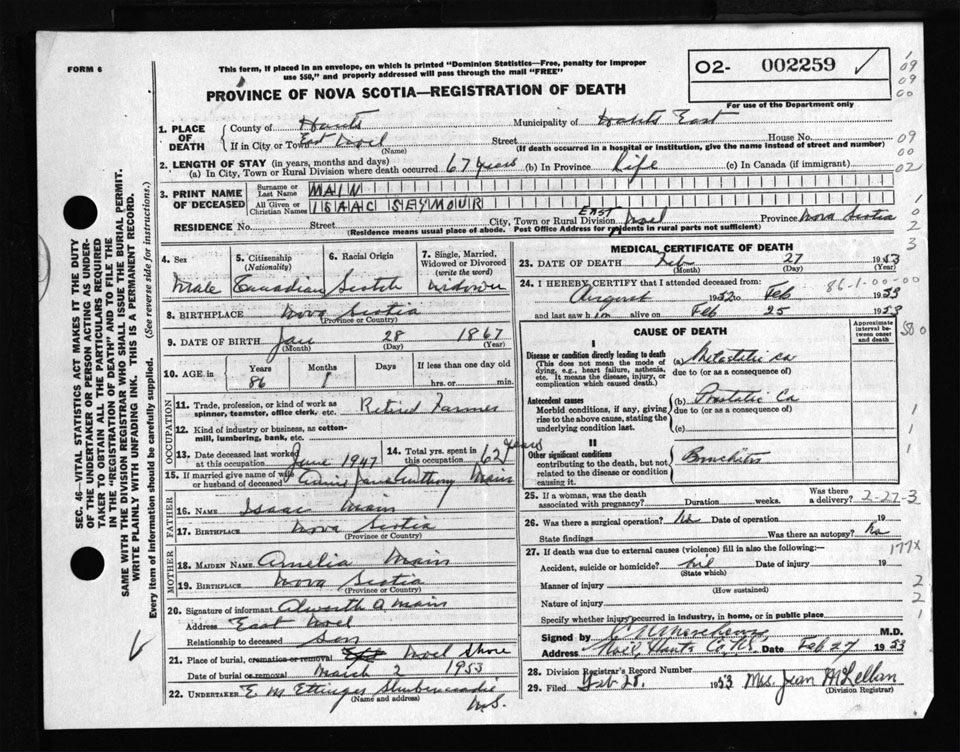 FORM 6
This form, if placed in an envelope, on which is printed "Dominion Statistics—Free, penalty for improper
use $50," and properly addressed will pass through the mail "FREE"
PROVINCE OF NOVA SCOTIA—REGISTRATION OF DEATH
O2- 002259 ✓
For use of the Department only
1. PLACE OF DEATH
County of Hants Municipality of Hants East
If in City or Town East Noel Street House No.
(Name) (If death occurred in a hospital or institution, give the name instead of street and number)
2. LENGTH OF STAY (in years, months and days)
(a) In City, Town or Rural Division where death occurred 67 years (b) In Province Life (c) In Canada (if immigrant)
3. PRINT NAME OF DECEASED
Surname or Last Name MAIN
All Given or Christian Names ISAAC SEYMOUR
RESIDENCE No. Street City, Town or Rural Division EAST Noel Province Nova Scotia
(Residence means usual place of abode. Post Office Address for residents in rural parts not sufficient)
4. Sex Male
5. Citizenship (Nationality) Canadian
6. Racial Origin Scotch
7. Single, Married, Widowed or Divorced (write the word) widower
8. BIRTHPLACE Nova Scotia
(Province or Country)
9. DATE OF BIRTH Jan 28 1867
(Month) (Day) (Year)
10. AGE in Years 86 Months 1 Days If less than one day old hrs. or min.
OCCUPATION
11. Trade, profession, or kind of work as spinner, teamster, office clerk, etc. Retired Farmer
12. Kind of industry or business, as cotton-mill, lumbering, bank, etc.
13. Date deceased last worked at this occupation June 1947
14. Total yrs. spent in this occupation 62 years
15. If married give name of wife or husband of deceased Annie Jane Anthony Main
FATHER
16. NAME Isaac Main
17. BIRTHPLACE Nova Scotia
(Province or Country)
MOTHER
18. MAIDEN NAME Amelia Main
19. BIRTHPLACE Nova Scotia
(Province or Country)
20. Signature of informant Alworth A Main
Address East Noel
Relationship to deceased Son
21. Place of burial, cremation or removal Noel Shore
Date of burial or removal March 2 1953
22. UNDERTAKER E. M Ettinger Shubenacadie
(Name and address) N.S.
MEDICAL CERTIFICATE OF DEATH
23. DATE OF DEATH Feb 27 1953
(Month) (Day) (Year)
24. I HEREBY CERTIFY that I attended deceased from: 86-1-00-00
August 1952 to Feb 1953
and last saw him alive on Feb 25 1953
CAUSE OF DEATH
Approximate interval between onset and death
I
Disease or condition directly leading to death
(This does not mean the mode of dying, e.g., heart failure, asthenia, etc. It means the disease, injury, or complication which caused death.)
(a) Metastatic ca
due to (or as a consequence of)
Antecedent causes
Morbid conditions, if any, giving rise to the above cause, stating the underlying condition last.
(b) Prostatic Ca
due to (or as a consequence of)
(c)
II
Other significant conditions
contributing to the death, but not related to the disease or condition causing it.
Bronchitis
25. If a woman, was the death associated with pregnancy? Duration weeks. Was there a delivery? 2-27-3
26. Was there a surgical operation? No Date of operation 19
State findings Was there an autopsy? No
27. If death was due to external causes (violence) fill in also the following:—
Accident, suicide or homicide? nil Date of injury 19
(State which)
Manner of injury
(How sustained)
Nature of injury
Specify whether injury occurred in industry, in home, or in public place
Signed by M.D.
Address Noel, Hants Co. N.S. Date Feb 27 1953
28. Division Registrar's Record Number
29. Filed Feb 28, 1953 Mrs. Jean McLellan
(Division Registrar)
177X
SEC. 46—VITAL STATISTICS ACT MAKES IT THE DUTY
OF THE UNDERTAKER OR PERSON ACTING AS UNDER-
TAKER TO OBTAIN ALL THE PARTICULARS REQUIRED
IN THE "REGISTRATION OF DEATH" AND TO FILE THE
SAME WITH THE DIVISION REGISTRAR WHO SHALL ISSUE THE BURIAL PERMIT.
WRITE PLAINLY WITH UNFADING INK. THIS IS A PERMANENT RECORD.
Every item of information should be carefully supplied. (See reverse side for instructions.)